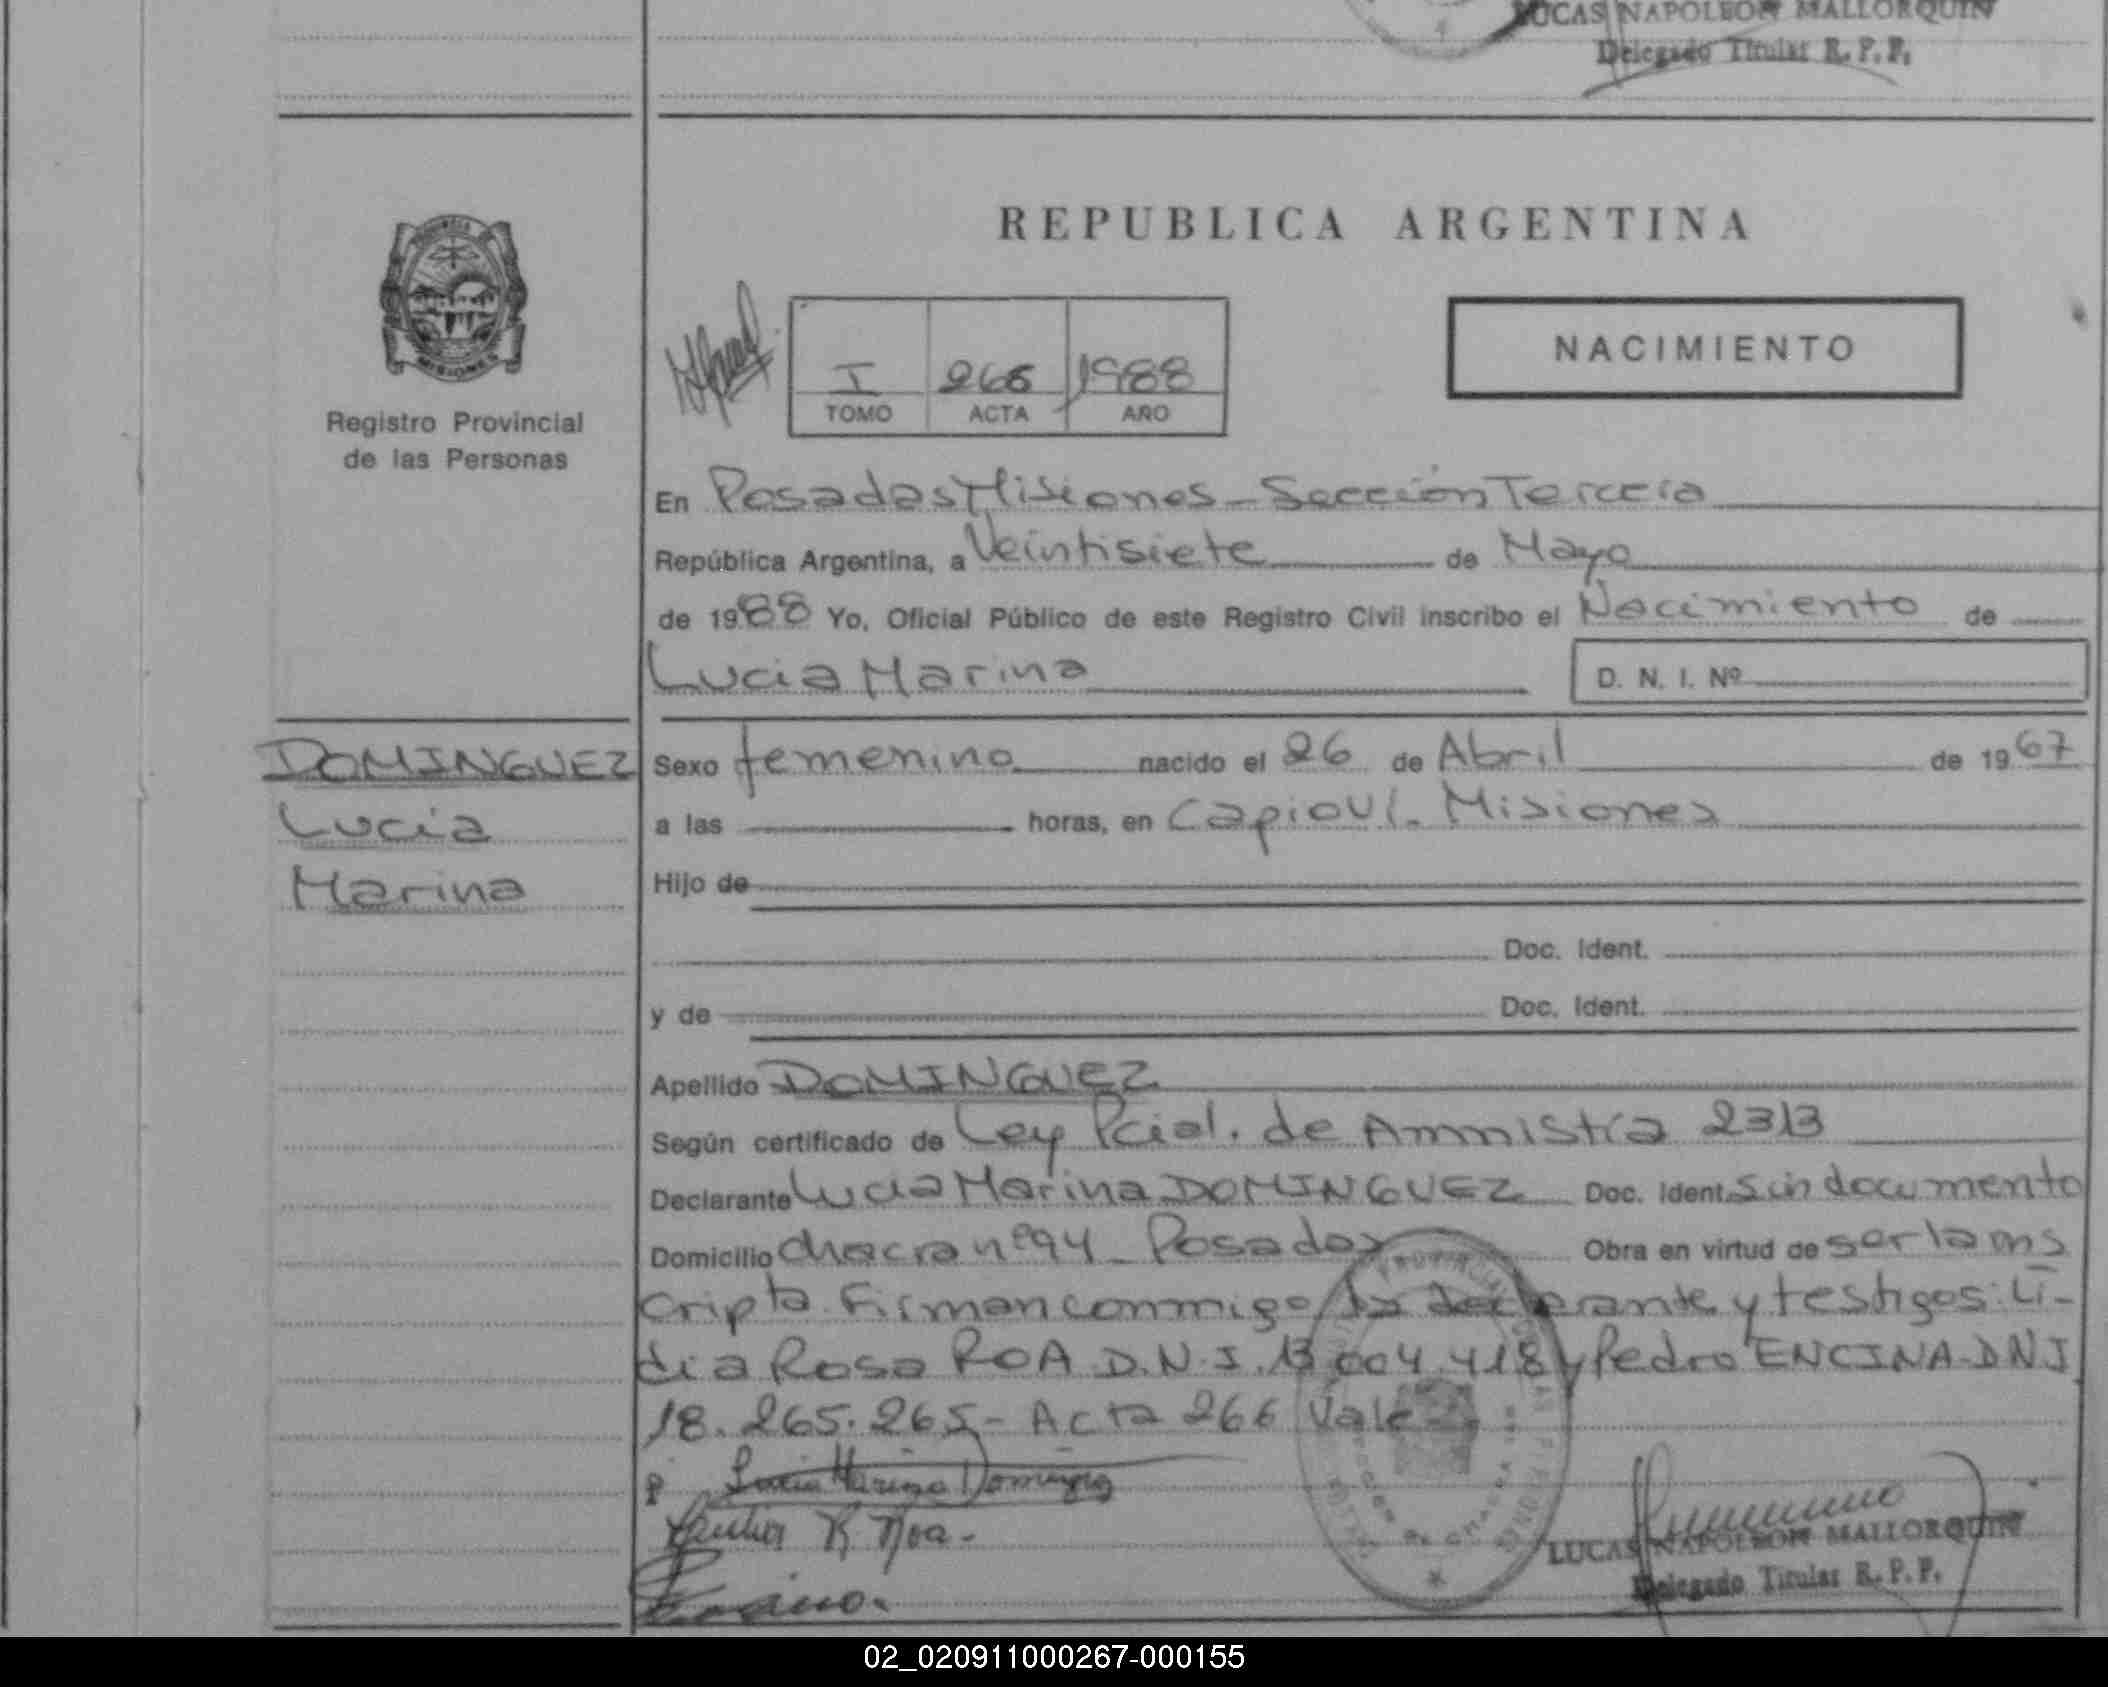 LUCAS NAPOLEON MALLORQUIN
Delegado Titular R. P. P.
MISIONES
Registro Provincial
de las Personas
REPUBLICA ARGENTINA
I 266 1988
TOMO ACTA AÑO
NACIMIENTO
En Posadas Misiones - Sección Tercera
República Argentina, a Veintisiete de Mayo
de 1988 Yo, Oficial Público de este Registro Civil inscribo el Nacimiento de
Lucia Marina D. N. I. Nº
DOMINGUEZ
Lucia
Marina
Sexo femenino nacido el 26 de Abril de 1967
a las horas, en Capioví. Misiones
Hijo de
Doc. Ident.
y de Doc. Ident.
Apellido DOMINGUEZ
Según certificado de Ley Pcial. de Amnistía 2313
Declarante Lucia Marina DOMINGUEZ Doc. Ident. Sin documento
Domicilio chacra nº 94 - Posadas Obra en virtud de ser la ins
cripta. Firman conmigo la declarante y testigos: Li-
dia Rosa ROA D.N.I. 13.004.418 y Pedro ENCINA - DNI
18.265.265 - Acta 266 Vale
Lucia Marina Dominguez
R. Roa.
LUCAS NAPOLEON MALLORQUIN
Delegado Titular R. P. P.
02_020911000267-000155